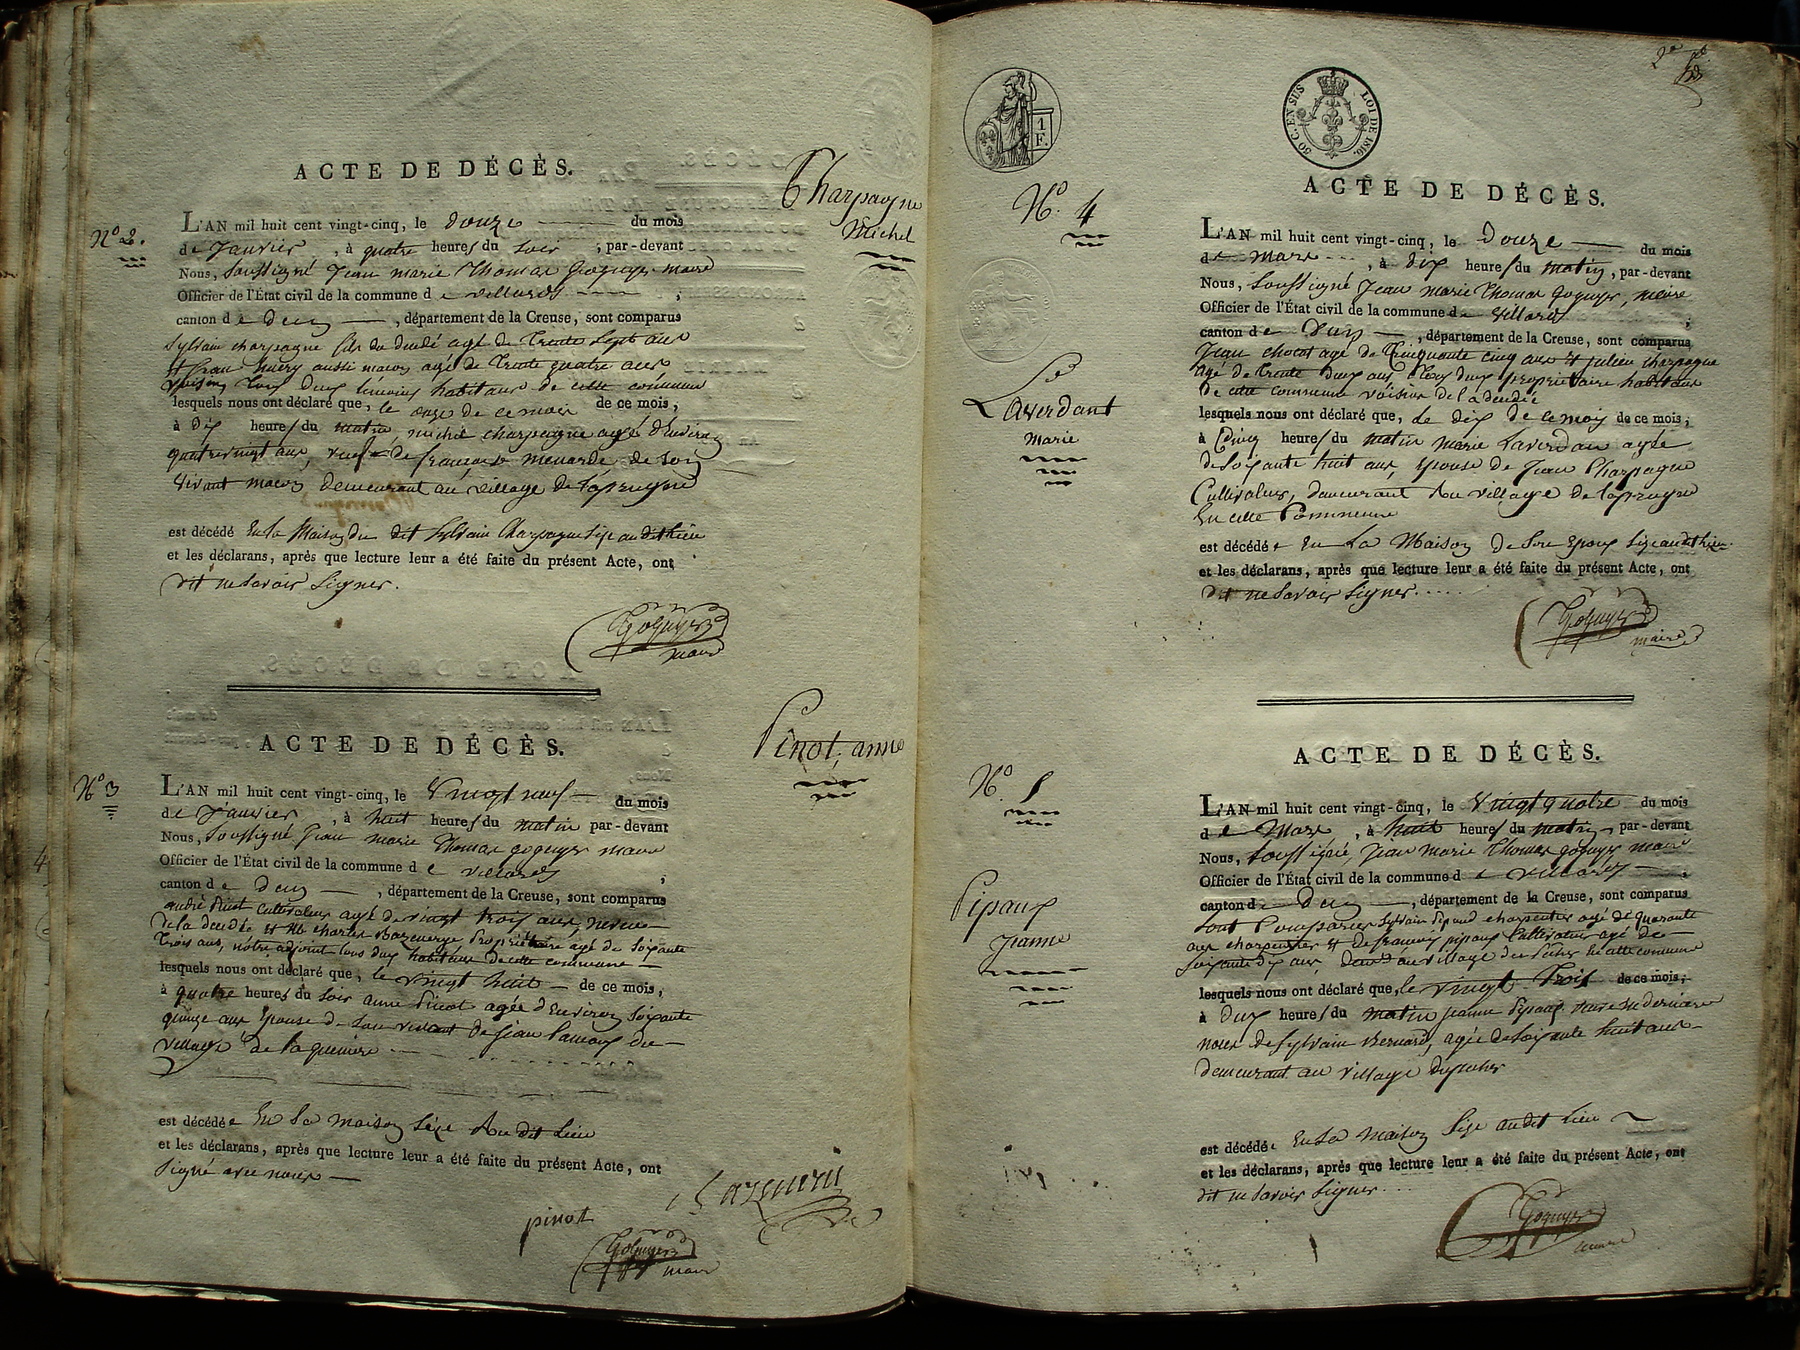 ACTE DE DÉCÈS.
Charpagne
Michel
N° 2.
L'AN mil huit cent vingt-cinq, le douze du mois
de Janvier, à quatre heures du soir, par-devant
Nous, soussigné Jean marie Thomas goguyer maire
Officier de l'État civil de la commune de villards ;
canton de Dun, département de la Creuse, sont comparus
Sylvain charpagne fils du décédé agé de trente sept ans
et Jean aussi maçon agé de trente quatre ans
voisin, tous deux témoins habitans de cette commune
lesquels nous ont déclaré que, le onze de ce mois de ce mois,
à dix heures du matin, michel charpagne agé d'Environ
quatrevingt ans, veuf de françoise menarde, de son
vivant maçon demeurant au village de Laprugne
est décédé En la Maison du dit Sylvain Charpagne Sise audit Lieu
et les déclarans, après que lecture leur a été faite du présent Acte, ont
dit ne savoir signer.
Goguyer
maire
ACTE DE DÉCÈS.
Pinot, anne
N° 3
L'AN mil huit cent vingt-cinq, le vingt neuf du mois
de Janvier, à huit heures du matin par-devant
Nous, soussigné Jean marie Thomas goguyer maire
Officier de l'État civil de la commune de villards ;
canton de Dun, département de la Creuse, sont comparus
andré Pinot Cultivateur agé de vingt trois ans, neveu
de la décédée et charles Bazenerye Propriétaire agé de soixante
trois ans, notre adjoint tous deux habitans de cette commune
lesquels nous ont déclaré que, le vingt huit de ce mois,
à quatre heures du soir anne Pinot agée d'Environ soixante
quinze ans Epouse de son vivant de Jean du
village de
est décédée En sa maison size Au dit Lieu
et les déclarans, après que lecture leur a été faite du présent Acte, ont
signé avec nous
pinot
Goguyer
maire
2e
1 F.
30 C. EN SUS LOI DE 1816.
ACTE DE DÉCÈS.
N° 4
Laverdant
marie
L'AN mil huit cent vingt-cinq, le douze du mois
de mars, à dix heures du matin, par-devant
Nous, soussigné Jean marie Thomas goguyer, maire
Officier de l'État civil de la commune de villards ;
canton de Dun, département de la Creuse, sont comparus
Jean chocat agé de Cinquante cinq ans et julien charpagne
agé de trente deux ans tous deux propriétaire habitans
de cette commune voisins de la décédée
lesquels nous ont déclaré que, le dix de ce mois de ce mois;
à Cinq heures du matin marie Laverdan agée
de soixante huit ans, Epouse de Jean Charpagne
Cultivateur, demeurant Au village de Laprugne
En cette Commune
est décédée En La Maison de son Epoux size audit Lieu
et les déclarans, après que lecture leur a été faite du présent Acte, ont
dit ne savoir signer
Goguyer
maire
ACTE DE DÉCÈS.
N° 5
Pipaux
Jeanne
L'AN mil huit cent vingt-cinq, le vingt quatre du mois
de Mars, à huit heures du matin, par-devant
Nous, soussigné, Jean marie Thomas goguyer maire
Officier de l'État civil de la commune de villards ;
canton de Dun, département de la Creuse, sont comparus
sont Comparus Sylvain Pipaud charpentier agé de quarante
ans charpentier et de françois pipaux Cultivateur agé de
soixante dix ans, au village des en cette commune
lesquels nous ont déclaré que, le vingt trois de ce mois;
à dix heures du matin jeanne Pipaux
de Sylvain Bernard, agée de soixante huit ans
demeurant au village
est décédée En sa maison sise audit Lieu
et les déclarans, après que lecture leur a été faite du présent Acte, ont
dit ne savoir signer
Goguyer
maire